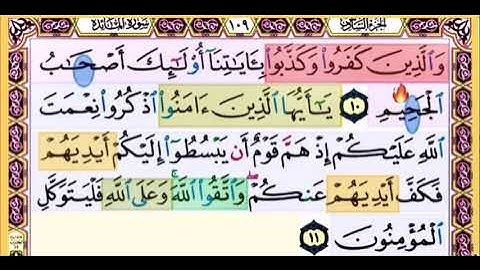 الجزء السادس ١٠٩ سورة المائدة
وَٱلَّذِينَ كَفَرُوا۟ وَكَذَّبُوا۟ بِـَٔايَـٰتِنَآ أُو۟لَـٰٓئِكَ أَصْحَـٰبُ
ٱلْجَحِيمِ ١٠ يَـٰٓأَيُّهَا ٱلَّذِينَ ءَامَنُوا۟ ٱذْكُرُوا۟ نِعْمَتَ
ٱللَّهِ عَلَيْكُمْ إِذْ هَمَّ قَوْمٌ أَن يَبْسُطُوٓا۟ إِلَيْكُمْ أَيْدِيَهُمْ
فَكَفَّ أَيْدِيَهُمْ عَنكُمْ ۖ وَٱتَّقُوا۟ ٱللَّهَ ۚ وَعَلَى ٱللَّهِ فَلْيَتَوَكَّلِ
ٱلْمُؤْمِنُونَ ١١